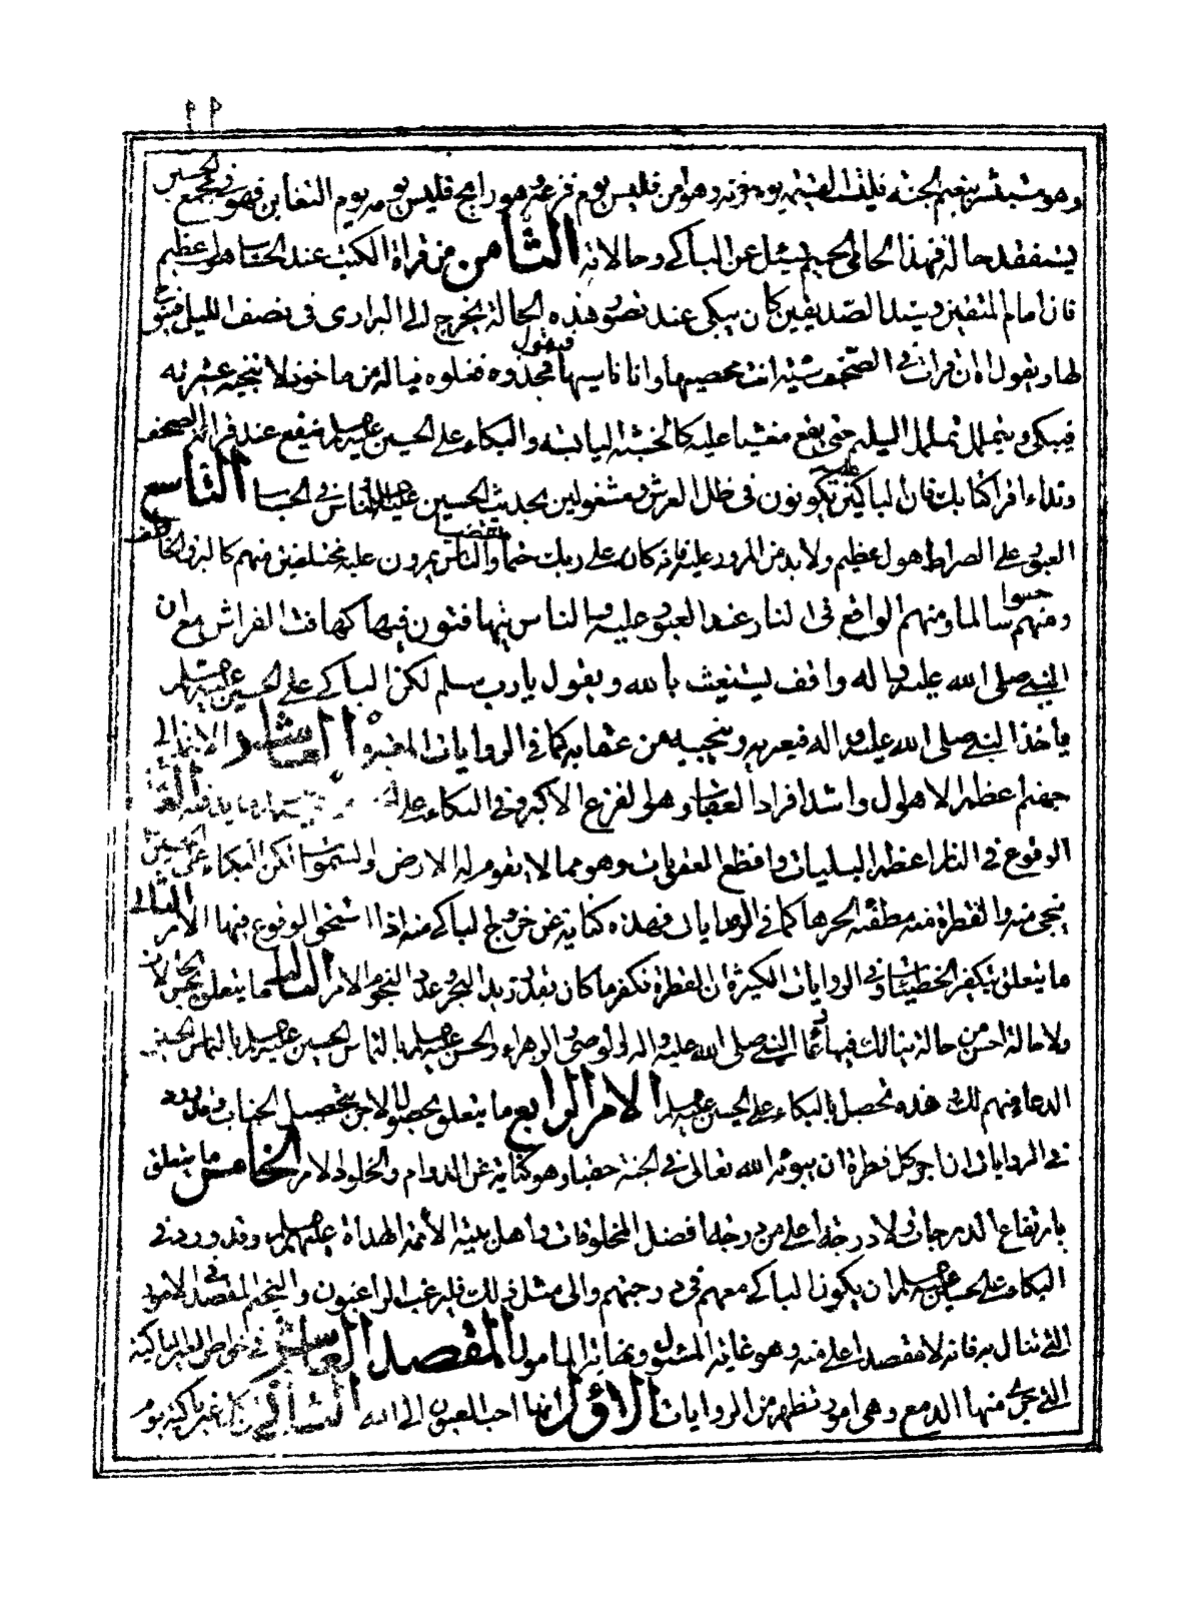 ٩٩
وهو مستبشر بنعيم الجنة فليقل القيمة يوم فزعه وهو امن فليس يوم فزعه وهو رابح فليس يومه يوم التغابن فهو في مجمع الحسين
يتفقد حاله فهذا الحال الحميم يسئل عن الباكي وحالاته الثامن من قراة الكتب عند الحساب هول عظيم
فان امام المتقين وسيد الصديقين كان يبكي عند تصور هذه الحالة يخرج الى البراري في نصف الليل فيتصور
لها ويقول اه ان قرات في الصحف سيئة انت محصيها وانا ناسيها فيقول خذوه فغلوه فياله من ماخوذ لا تنجيه عشيرته
فيبكي ويتململ تململ السليم حتى يقع مغشيا عليه كالخشبة اليابسة والبكاء على الحسين عليه السلام ينفع عند قرائة الصحف
ونداء اقرا كتابك فان الباكين عليه يكونون في ظل العرش ومشغولين بحديث الحسين عليه السلام والناس في الحساب التاسع
العبور على الصراط هول عظيم ولا بد من المرور عليه فانه كان على ربك حتما مقضيا والناس يمرون عليه مختلفين منهم كالبرق الخاطف
ومنهم حبوا سالما ومنهم الواقع في النار وعند العبور عليه والناس يتهافتون فيها كتهافت الفراش مع ان
النبي صلى الله عليه واله واقف يستغيث بالله ويقول يا رب سلم لكن الباكي على الحسين عليه السلام
ياخذ النبي صلى الله عليه واله فيعبر به وينجيه من عقابه كما في الروايات المعتبرة العاشر الامر الى
جهنم اعظم الاهوال واشد افراد العقاب وهو الفزع الاكبر وفي البكاء على
الوقوع في النار اعظم البليات وافظع العقوبات وهو مما لا تقوم له الارض والسموات لكن البكاء على الحسين
ينجي منه والقطرة منه مطفئة لحرها كما في الروايات فهذه كناية عن خروج الباكي منه اذا استحق الوقوع فيها الامر الثاني
ما يتعلق بتكفير الخطيئات وفي الروايات الكثيرة ان القطرة تكفر ما كان بقدر زبد البحر وعدد النجوم الامر الثالث ما يتعلق بحسن الحالات
ولا حالة احسن من حالة ينالك فيها دعاء النبي صلى الله عليه واله والوصي والزهراء والحسن عليه السلام بالتماس الحسين عليه السلام بالتماس الحسين
الدعاء منهم لك وهذه تحصل بالبكاء على الحسين عليه السلام الامر الرابع ما يتعلق بحصول الاجر بتحصيل الجنات وقد ورد
في الروايات ان اجر كل قطرة ان يبوئه الله تعالى في الجنة حقبا وهو كناية عن الدوام والخلود الامر الخامس ما يتعلق
بارتفاع الدرجات ولا درجة اعلى من درجة افضل المخلوقات واهل بيته الائمة الهداة عليهم السلام وقد ورد في
البكاء على الحسين عليه السلام ان يكون الباكي معهم في درجتهم والى مثل ذلك فليرغب الراغبون والنختم المقصد في الامور
التي تنال به فانه لا مقصد اعلى منه وهو غاية المسئول ونهاية المامول المقصد العاشر في خواص العين الباكية
التي يجري منها الدمع وهي امور تظهر من الروايات الاول انها احب العيون الى الله الثاني ان كل عين باكية يوم